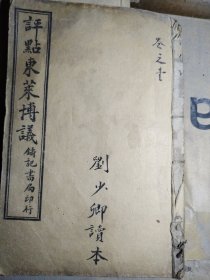 評點東萊博議
鑄記書局印行
卷之壹
劉少卿讀本